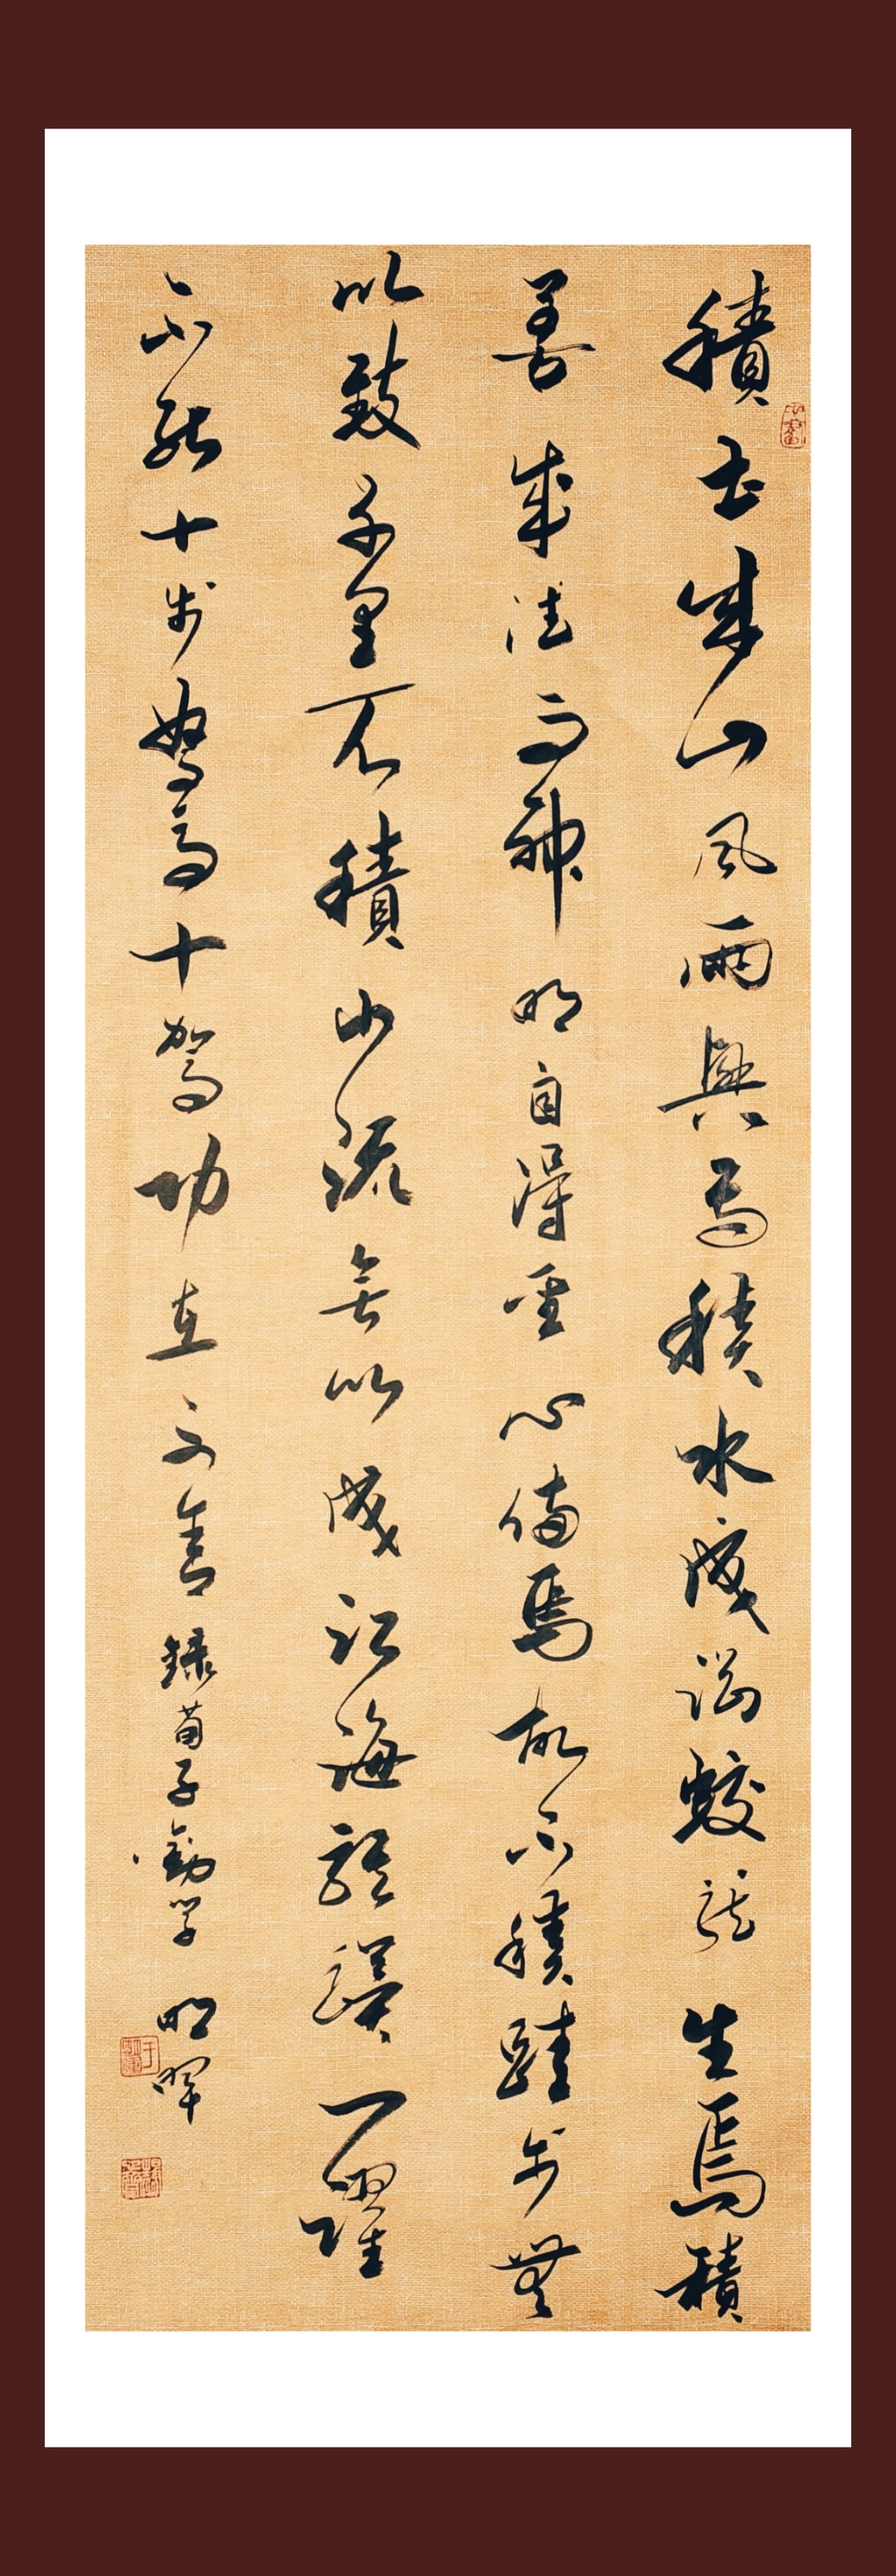 積土成山風雨興焉積水成淵蛟龍生焉積
善成德而神明自得聖心備焉故不積跬步無
以致千里不積小流無以成江海騏驥一躍
不能十步駑馬十駕功在不舍錄荀子勸學 明暉